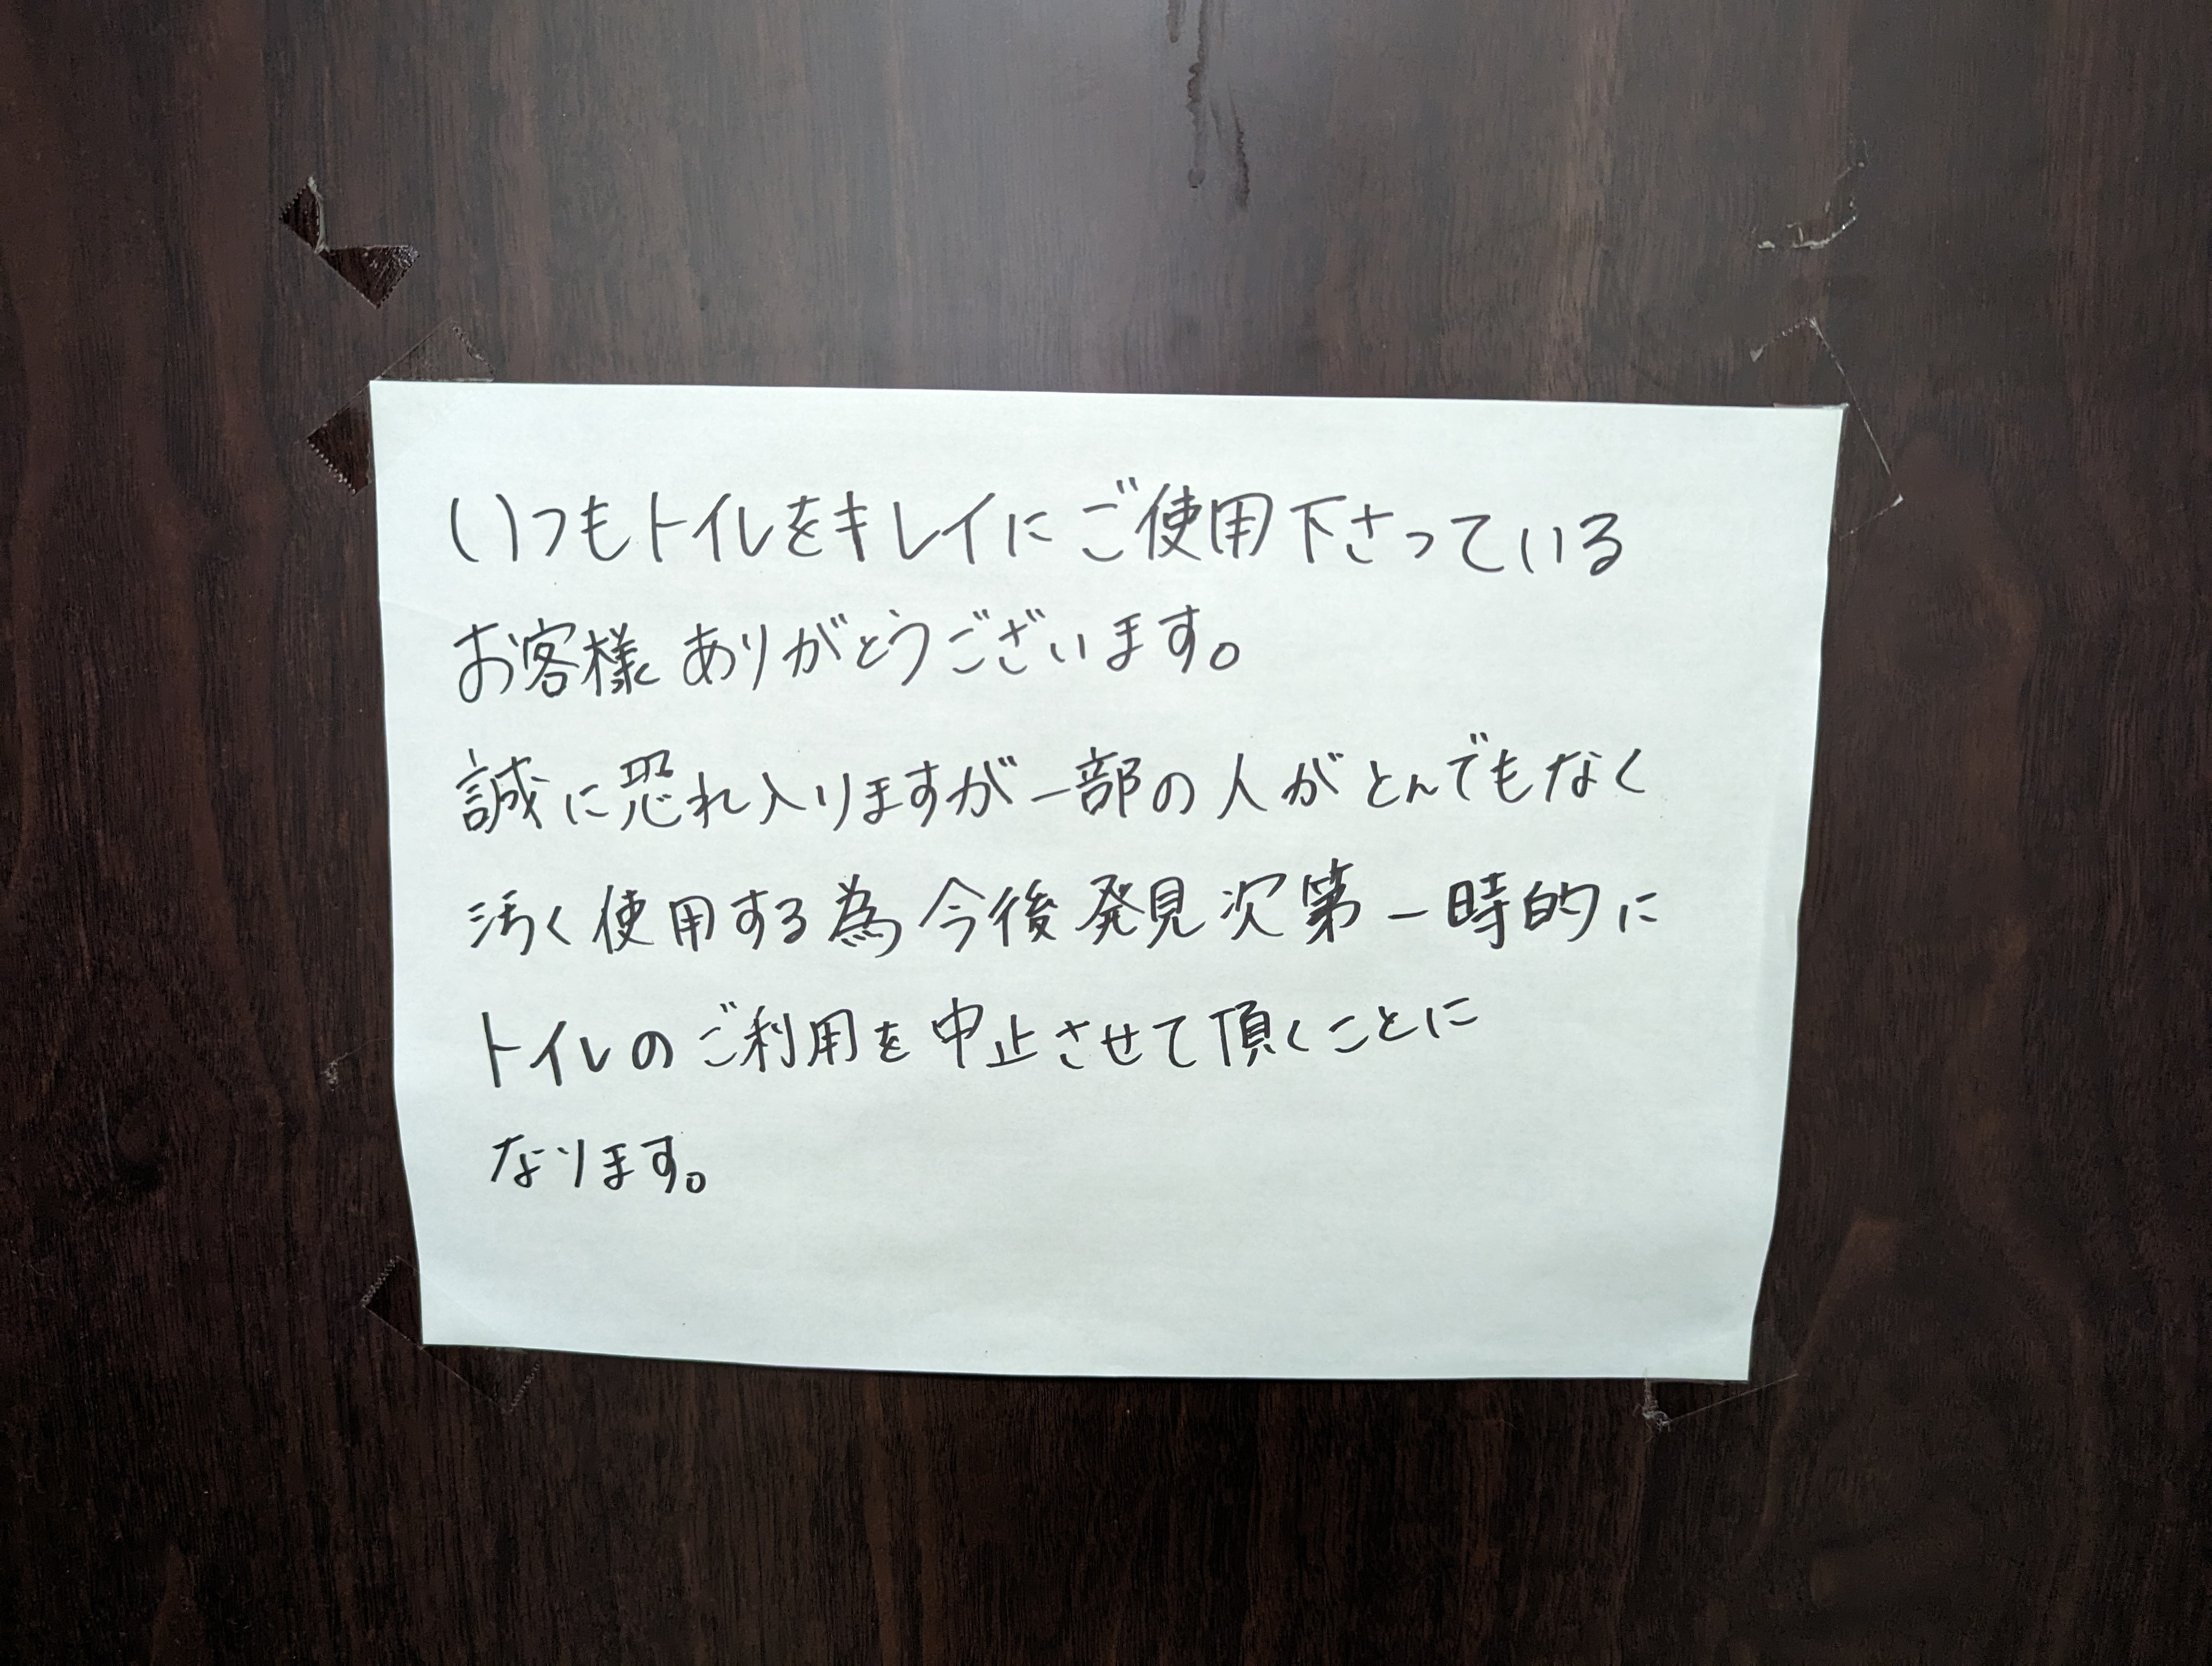 いつもトイレをキレイにご使用下さっている
お客様ありがとうございます。
誠に恐れ入りますが一部の人がとんでもなく
汚く使用する為今後発見次第一時的に
トイレのご利用を中止させて頂くことに
なります。